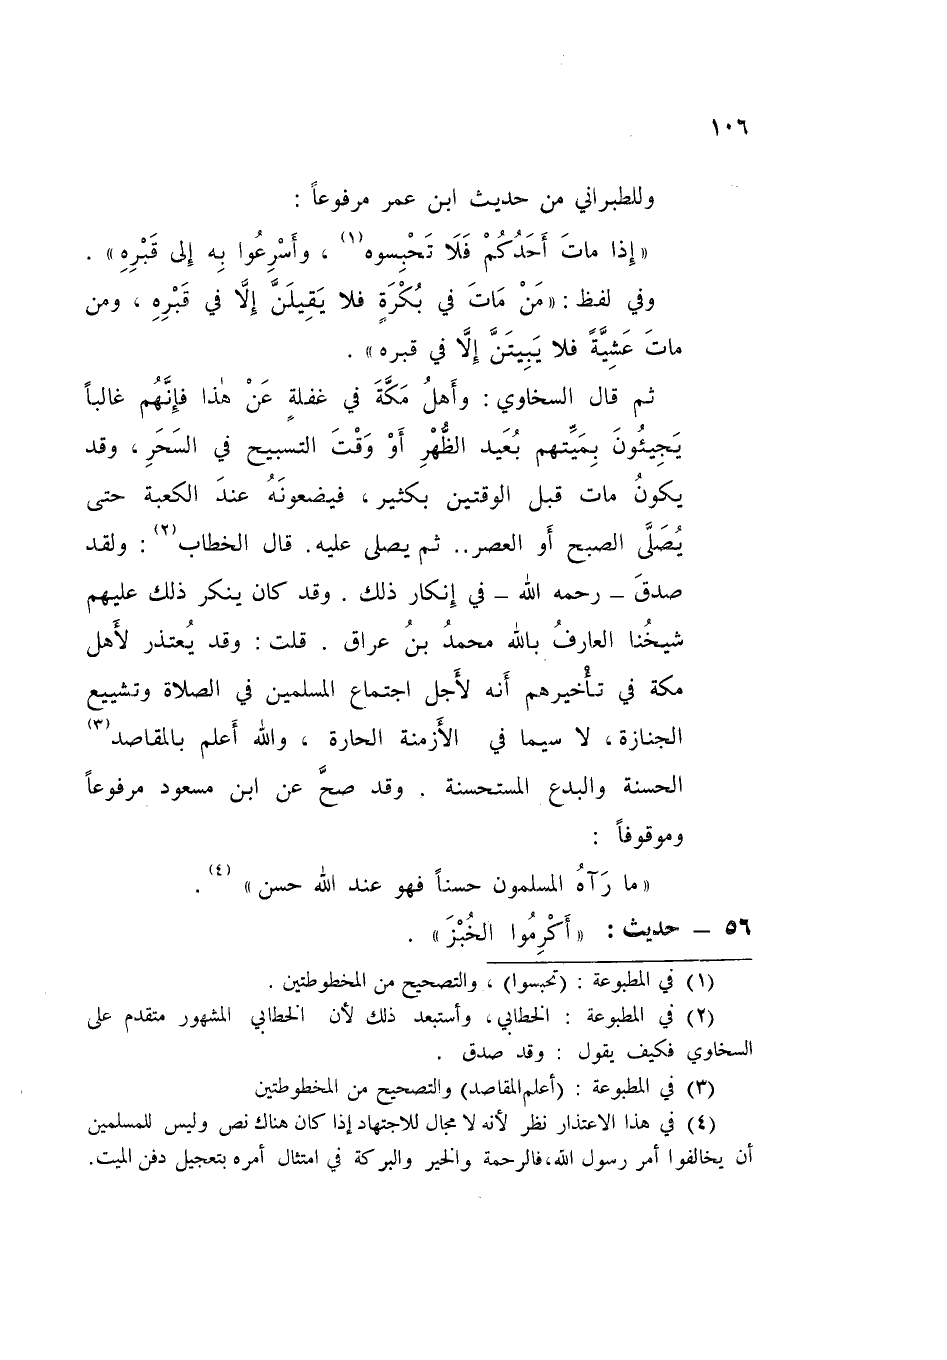 ١٠٦
وللطبراني من حديث ابن عمر مرفوعاً :
«إذا ماتَ أَحَدُكُمْ فَلَا تَحْبِسوه(١) ، وأَسْرِعُوا بِه إلى قَبْرِهِ» .
وفي لفظ : «مَنْ مَاتَ في بُكْرَةٍ فلا يَقِيلَنَّ إلَّا في قَبْرِهِ ، ومن
ماتَ عَشِيَّةً فلا يَبِيتَنَّ إلَّا في قبره» .
ثم قال السخاوي : وأَهلُ مَكَّةَ في غفلةٍ عَنْ هٰذا فإنَّهُم غالباً
يَجِيئُونَ بِمَيِّتهم بُعَيد الظُّهْرِ أَوْ وَقْتَ التسبيح في السَحَرِ ، وقد
يكونُ مات قبل الوقتين بكثير ، فيضعونَهُ عندَ الكعبة حتى
يُصَلَّى الصبح أَو العصر.. ثم يصلى عليه. قال الخطاب(٢) : ولقد
صدقَ – رحمه الله – في إنكار ذلك . وقد كان ينكر ذلك عليهم
شيخُنا العارفُ بالله محمدُ بنُ عراق . قلت : وقد يُعتذر لأَهل
مكة في تأْخيرهم أَنه لأَجل اجتماع المسلمين في الصلاة وتشييع
الجنازة ، لا سيما في الأَزمنة الحارة ، والله أَعلم بالمقاصد(٣)
الحسنة والبدع المستحسنة . وقد صحَّ عن ابن مسعود مرفوعاً
وموقوفاً :
«ما رَآهُ المسلمون حسناً فهو عند الله حسن» (٤) .
٥٦ – حديث : «أَكْرِمُوا الخُبْزَ» .
(١) في المطبوعة : (تحبسوا) ، والتصحيح من المخطوطتين .
(٢) في المطبوعة : الخطابي ، وأستبعد ذلك لأن الخطابي المشهور متقدم على
السخاوي فكيف يقول : وقد صدق .
(٣) في المطبوعة : (أعلم المقاصد) والتصحيح من المخطوطتين
(٤) في هذا الاعتذار نظر لأنه لا مجال للاجتهاد إذا كان هناك نص وليس للمسلمين
أن يخالفوا أمر رسول الله، فالرحمة والخير والبركة في امتثال أمره بتعجيل دفن الميت.